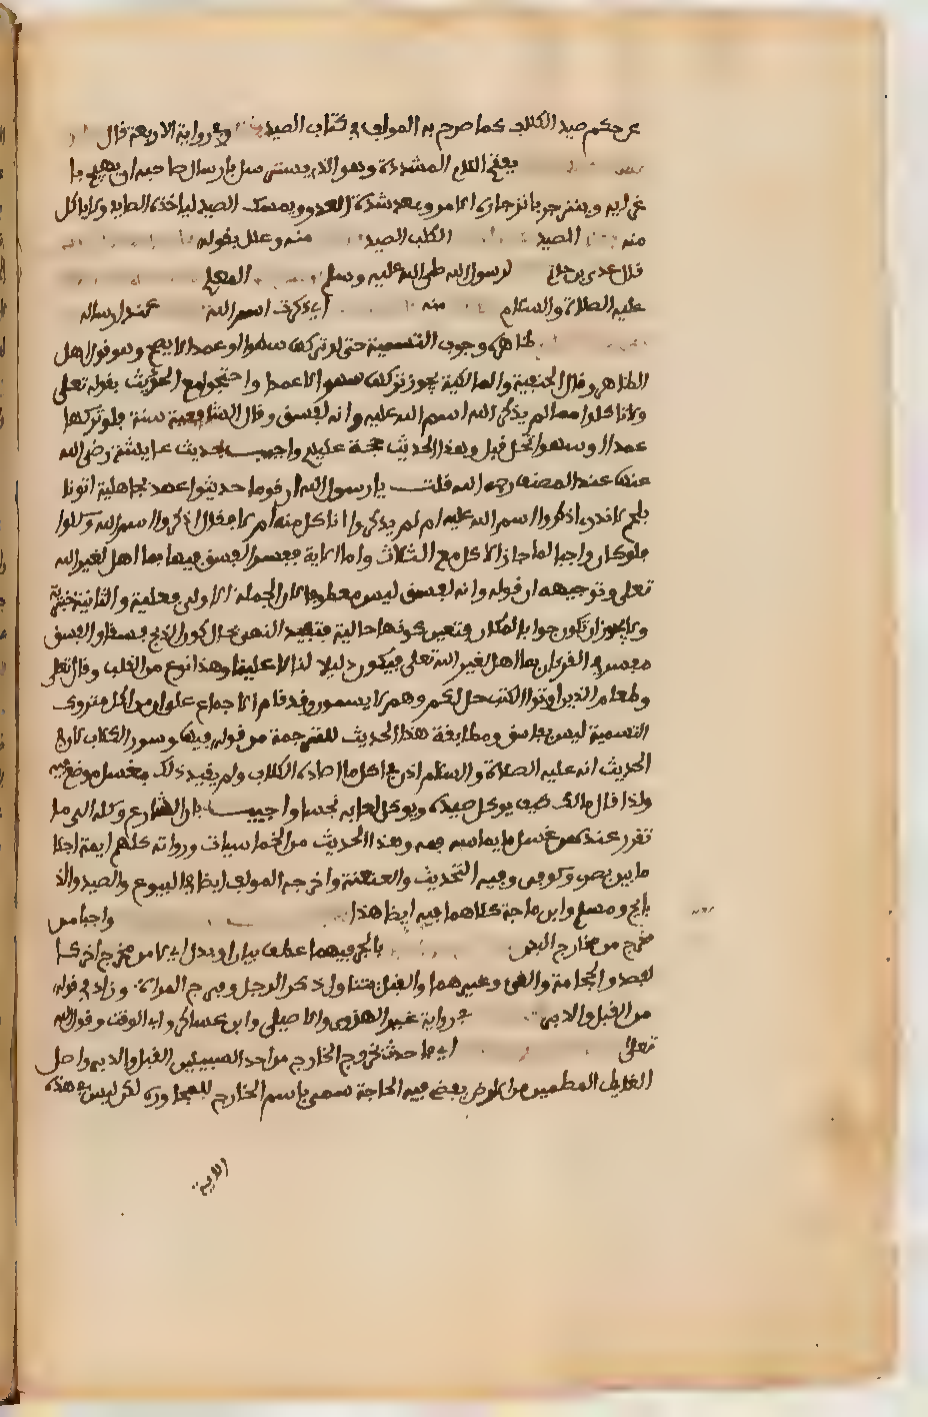 عن حكم صيد الكلاب كما صرح به المولف في كتاب الصيد وفي رواية الاربعة قال
بفتح اللام المشددة وهو الذي يسترسل بارسال صاحبه اي يهيج با
غرايه وينزجر بانزجاره في الامر وبعد شدة العدو ويمسك الصيد لياخذه الصايد ولا ياكل
منه الصيد الكلب الصيد منه وعلل بقوله
قال عدي بن حاتم لرسول الله صلى الله عليه وسلم المعلم
عليه الصلاة والسلام منه اي ذكرت اسم الله عند ارساله
ظاهره وجوب التسمية حتى لو تركت سهوا او عمدا لا يحل وهو قول اهل
الظاهر وقال الحنفية والمالكية يجوز تركها سهوا لا عمدا واحتجوا مع الحديث بقوله تعلى
ولا تاكلوا مما لم يذكر الله اسم الله عليه وانه لفسق وقال الشافعية سنة فلو تركها
عمدا او سهوا تحل قيل وهذا الحديث حجة عليهم واجيب بحديث عايشة رضي الله
عنها عند المصنف رحمه الله قلت يا رسول الله ان قوما حديثوا عهد بجاهلية اتونا
بلحم لا ندري اذكروا اسم الله عليه ام لم يذكروا اناكل منه ام لا فقال اذكروا اسم الله وكلوا
فلو كان واجبا لما جاز الاكل مع الشك واما الاية ففسر الفسق فيها بما اهل لغير الله
تعلى وتوجيهه ان قوله وانه لفسق ليس معطوفا لان الجملة الاولى فعلية والثانية خبرية
ولا يجوز ان تكون جوابا لمكان فتعين كونها حالية فتقيد النهي بحال كون الذبح فسقا والفسق
مفسر في القرءان بما اهل لغير الله تعلى فيكون دليلا لنا لا علينا وهذا نوع من القلب وقال تعلى
وطعام الذين اوتوا الكتب حل لكم وهم لا يسمون وقد قام الاجماع على ان من اكل متروك
التسمية ليس بفاسق ومطابقة هذا الحديث للترجمة من قوله فيها وسور الكلاب لان في
الحديث انه عليه الصلاة والسلام اذن في اكل ما صاده الكلاب ولم يقيد ذلك بغسل موضع فمه
ولذا قال مالك كيف يوكل صيده ويكون لعابه نجسا واجيب بان الشارع وكله الى ما
تقرر عنده من غسل ما يماسه فمه وهذا الحديث من الخماسيات ورواته كلهم ايمة اجلا
ما بين بصري وكوفي وفيه التحديث والعنعنة واخرجه المولف ايضا في البيوع والصيد والذ
بايح ومسلم وابن ماجة كلاهما فيه ايضا هذا واجبا من
مخرج من مخارج البدن بالجر فيهما عطف بيان او بدل اي لا من مخرج اخر كا
لفصد والحجامة والقي وغيرهما والقبل يتناول ذكر الرجل وفرج المراة وزاد في قوله
من القبل والدبر في رواية غير الهروي والاصيلي وابن عساكر وابي الوقت وقول الله
تعلى اي ما حدث بخروج الخارج من احد السبيلين القبل والدبر واصل
الغايط المطمين من الارض يقضى فيه الحاجة سمي باسم الخارج للمجاورة لكن ليس في هذه
الاية